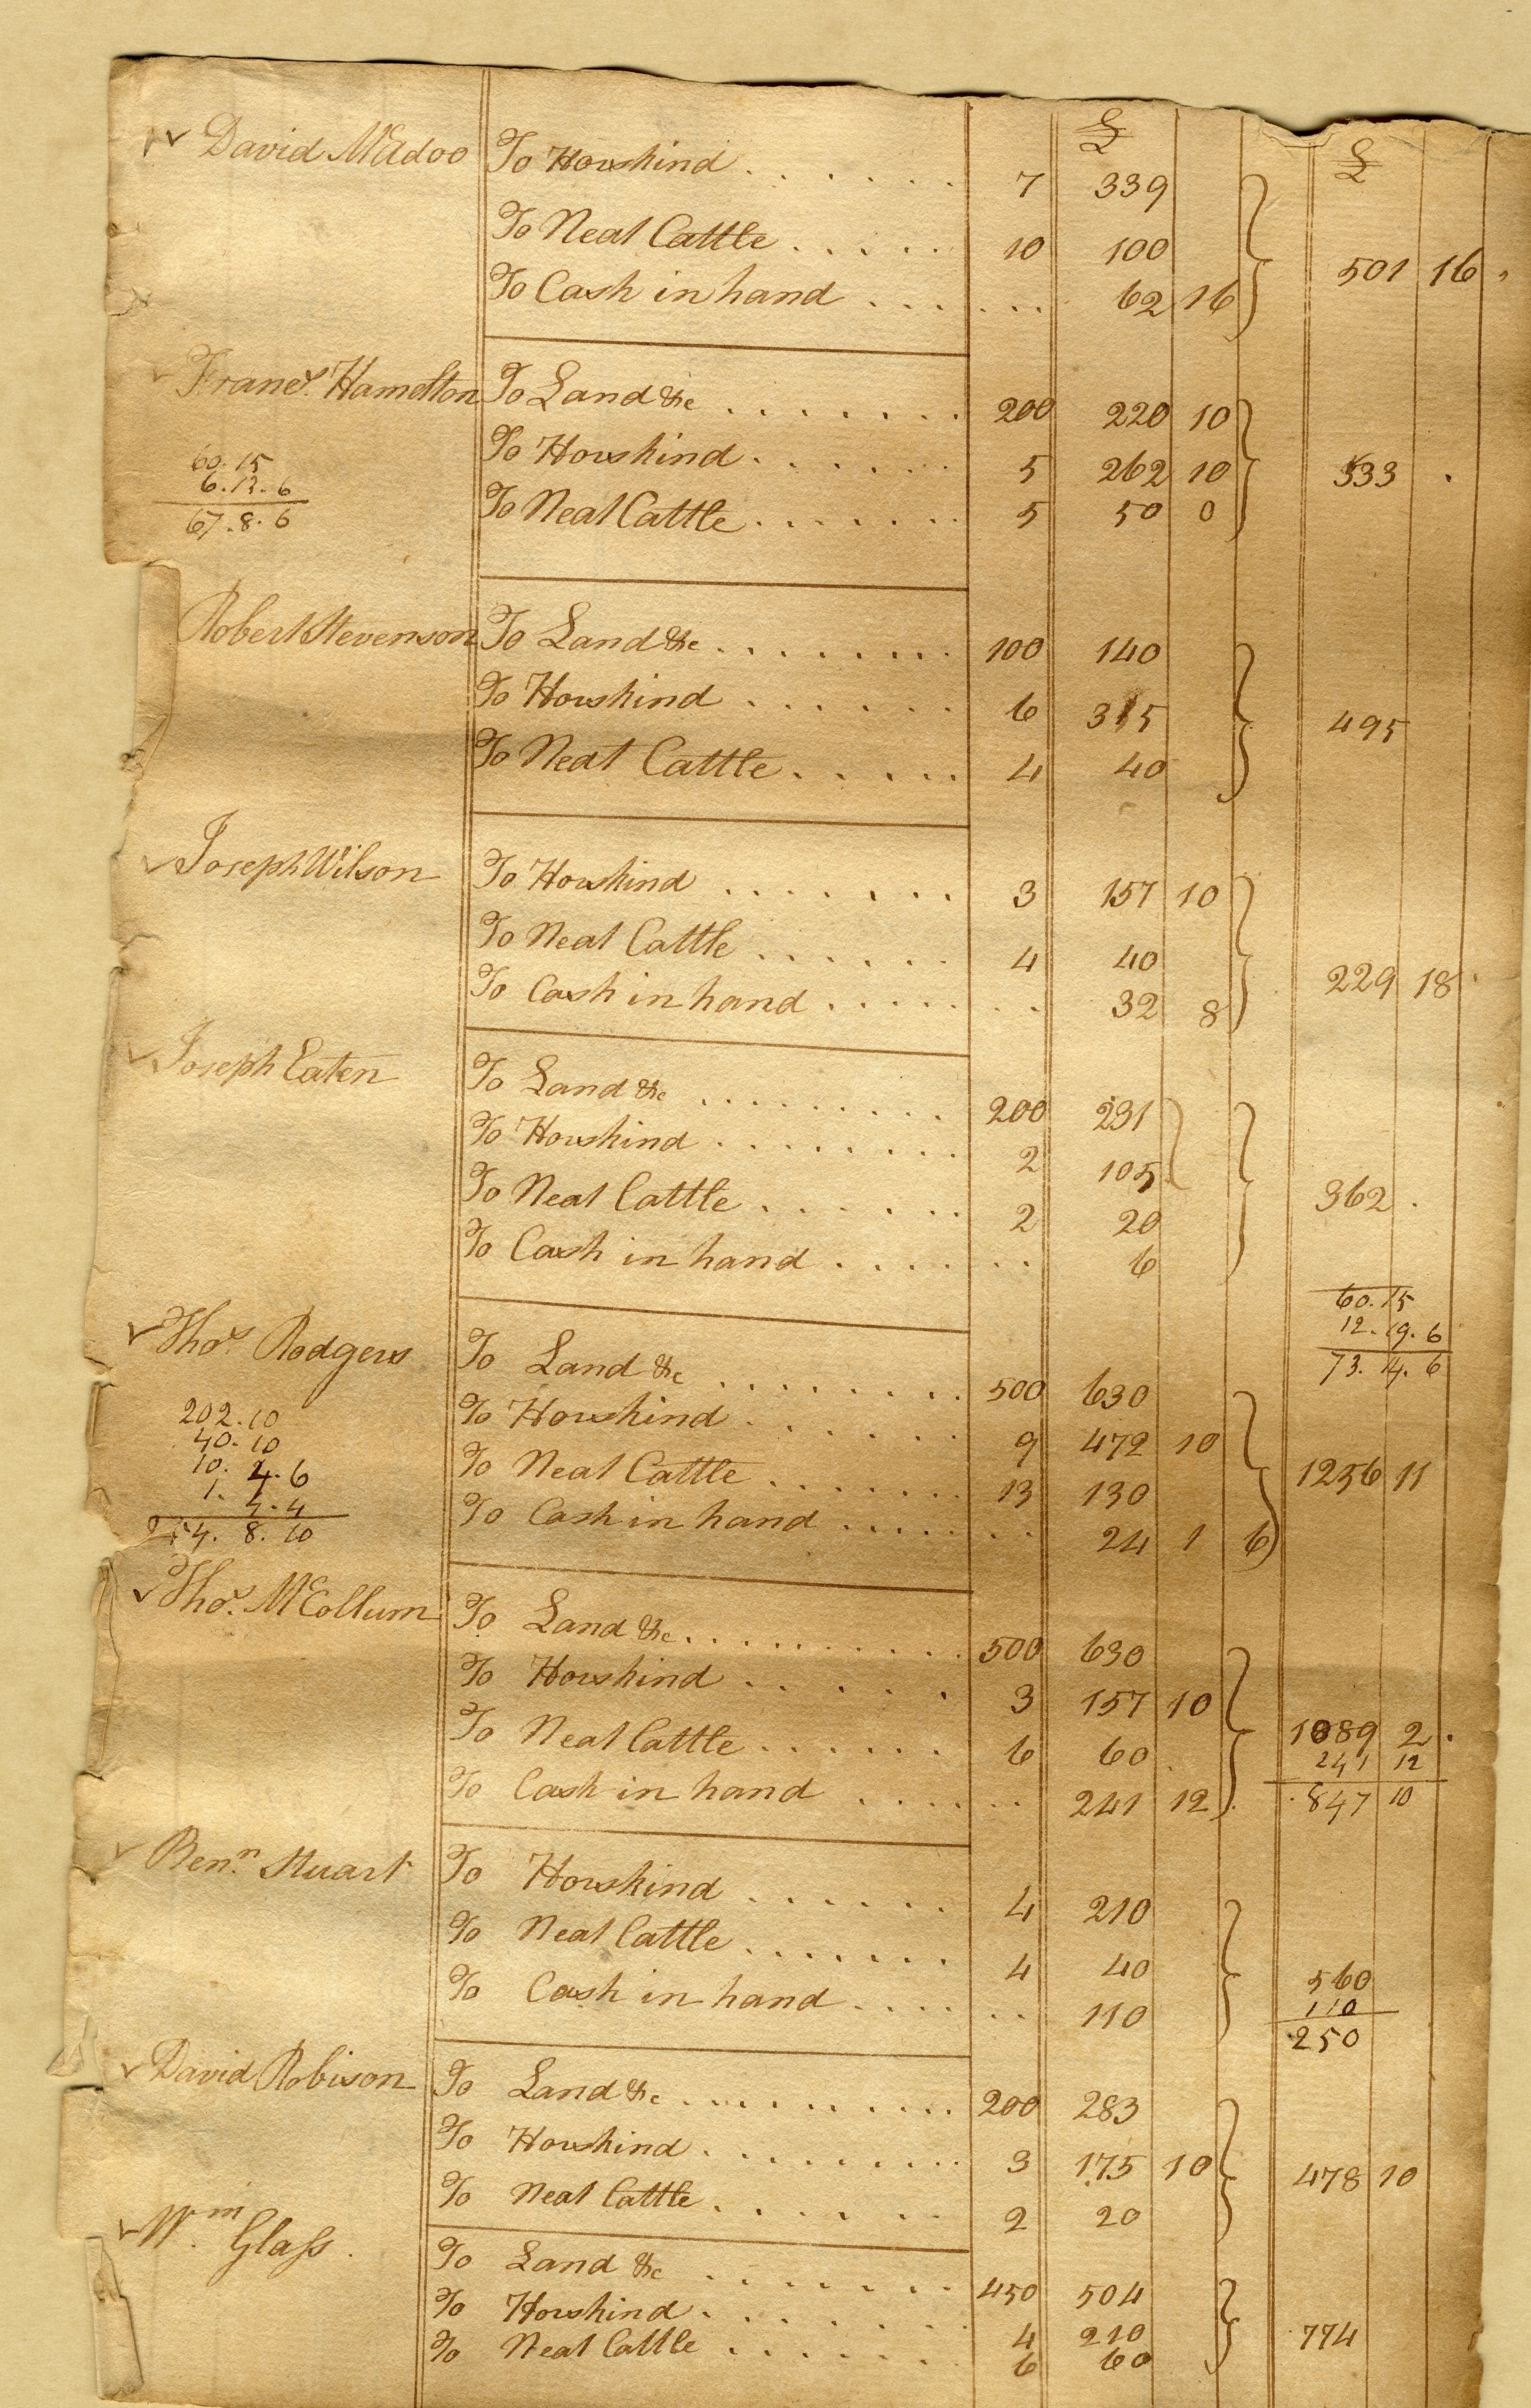 £ £
David McAdoo To Horskind 7 339
To Neat Cattle 10 100
501 16
To Cash in hand 62 16
Frans. Hamelton To Land &c 200 220 10
To Horskind 5 262 10 533
60.15
6.13.6
To Neat Cattle 5 50 0
67.8.6
Robert Stevenson To Land &c 100 140
To Horskind 6 315 495
To Neat Cattle 4 40
Joseph Wilson To Horskind 3 157 10
To Neat Cattle 4 40
229 18
To Cash in hand 32 8
Joseph Eaten To Land &c 200 231
To Horskind 2 105
To Neat Cattle 2 20 362
To Cash in hand 6
60.15
12.19.6
73.4.6
Thos. Rodgers To Land &c 500 630
202.10
To Horskind 9 472 10
40.10
To Neat Cattle 13 130 1256 11
10.4.6
To Cash in hand 24 1 6
1.4.4
254.8.10
Thos. McCollum To Land &c 500 630
To Horskind 3 157 10
To Neat Cattle 6 60 1089 2
241 12
To Cash in hand 241 12 847 10
Benn. Stuart To Horskind 4 210
To Neat Cattle 4 40 560
To Cash in hand 110 110
250
David Robison To Land &c 200 283
To Horskind 3 175 10 478 10
To Neat Cattle 2 20
Wm. Glass To Land &c 450 504
To Horskind 4 210 774
To Neat Cattle 6 60